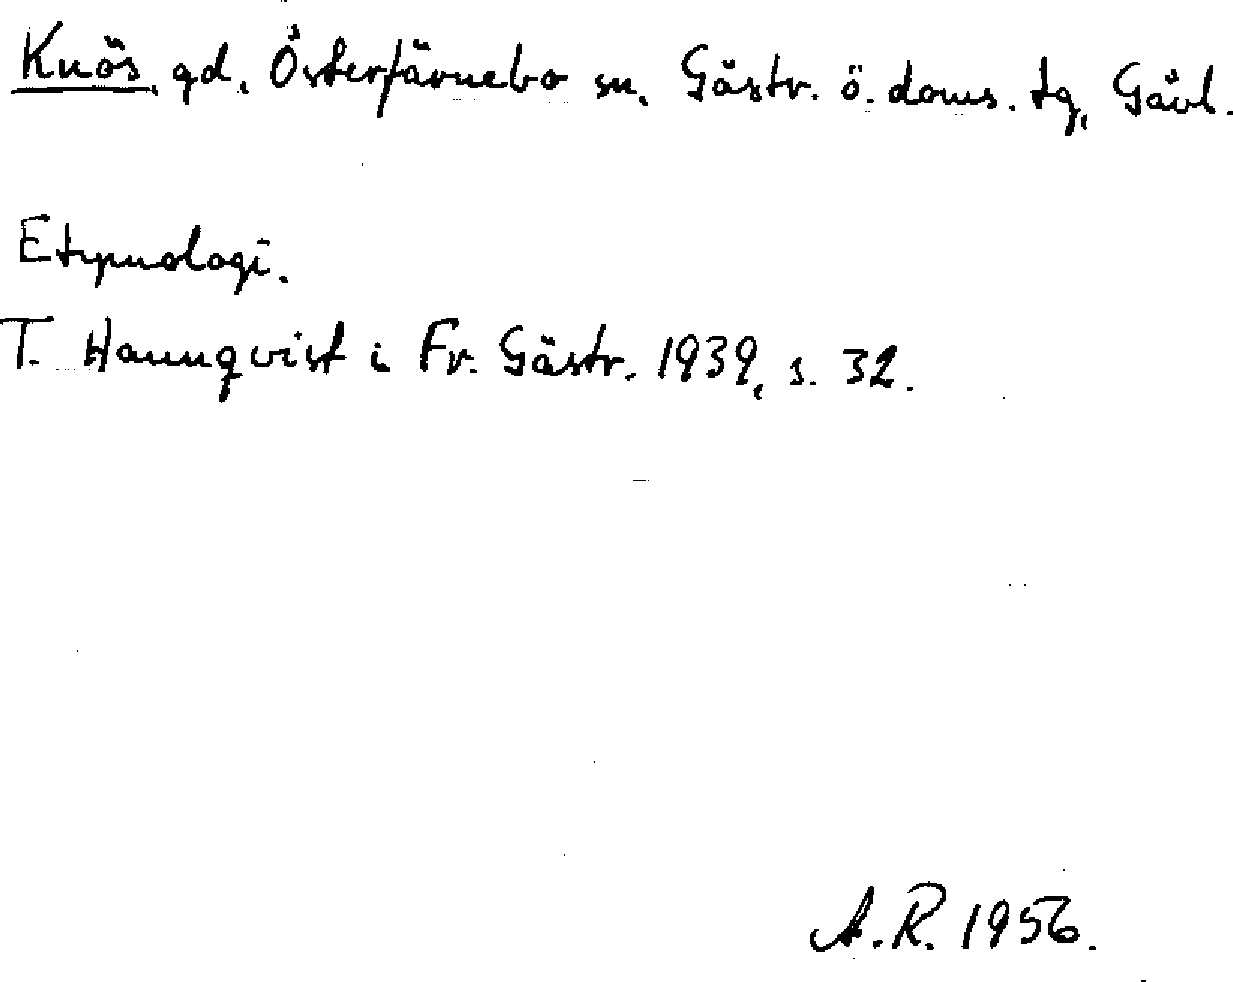 Knös, gd, Österfärnebo sn, Gästr. ö. doms. tg, Gävl.
Etymologi.
T. Hannqvist i Fr. Gästr. 1939, s. 32.
A.R. 1956.